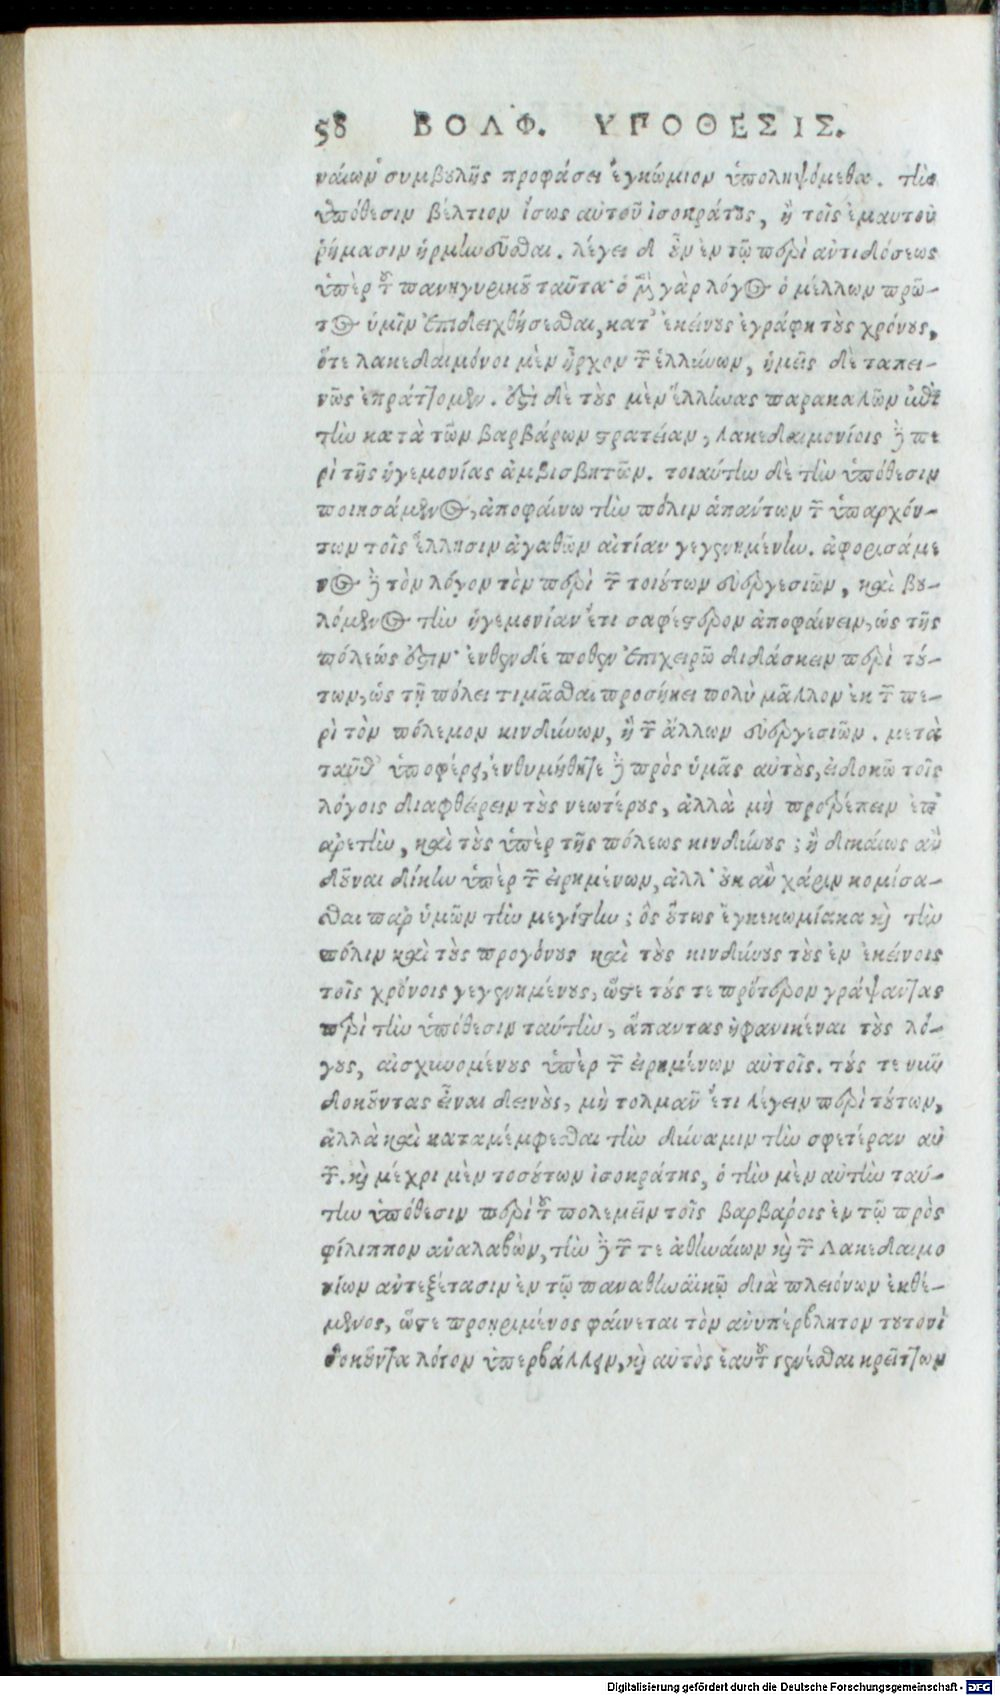 58 ΒΟΛΦ. ΥΠΟΘΕΣΙΣ.
ναίων συμβουλῆς προφάσει ἐγκώμιον ὑποληψόμεθα. τὴν
ὑπόθεσιν βέλτιον ἴσως αὐτοῦ ἰσοκράτους, ἢ τοῖς ἐμαυτοῦ
ῥήμασιν ἡρμηνεῦσθαι. λέγει δ' οὖν ἐν τῷ περὶ ἀντιδόσεως
ὑπὲρ τοῦ πανηγυρικοῦ ταῦτα· ὁ μὲν γὰρ λόγος ὁ μέλλων πρῶ-
τος ὑμῖν ἐπιδειχθήσεσθαι, κατ' ἐκείνους ἐγράφη τοὺς χρόνους,
ὅτε λακεδαιμόνοι μὲν ἦρχον τῶν ἑλλήνων, ἡμεῖς δὲ ταπει-
νῶς ἐπράττομεν. ἔστι δὲ τοὺς μὲν ἕλληνας παρακαλῶν ἐπὶ
τὴν κατὰ τῶν βαρβάρων στρατείαν, λακεδαιμονίοις δὲ πε
ρὶ τῆς ἡγεμονίας ἀμβισβητῶν. τοιαύτην δὲ τὴν ὑπόθεσιν
ποιησάμενος, ἀποφαίνω τὴν πόλιν ἁπάντων τῶν ὑπαρχόν-
των τοῖς ἕλλησιν ἀγαθῶν αἰτίαν γεγενημένην. ἀφορισάμε
νος δὲ τὸν λόγον τὸν περὶ τῶν τοιούτων εὐεργεσιῶν, καὶ βου-
λόμενος τὴν ἡγεμονίαν ἔτι σαφέστερον ἀποφαίνειν, ὡς τῆς
πόλεώς ἐστιν· ἐνθένδέ ποθεν ἐπιχειρῶ διδάσκειν περὶ τού-
των, ὡς τῇ πόλει τιμᾶσθαι προσήκει πολὺ μᾶλλον ἐκ τῶν πε-
ρὶ τὸν πόλεμον κινδύνων, ἢ τῶν ἄλλων εὐεργεσιῶν. μετὰ
ταῦθ' ὑποφέρει, ἐνθυμήθητε δὲ πρὸς ὑμᾶς αὐτοὺς, εἰ δοκῶ τοῖς
λόγοις διαφθείρειν τοὺς νεωτέρους, ἀλλὰ μὴ προτρέπειν ἐπ'
ἀρετὴν, καὶ τοὺς ὑπὲρ τῆς πόλεως κινδύνους; ἢ δικαίως ἂν
δοῦναι δίκην ὑπὲρ τῶν εἰρημένων, ἀλλ' οὐκ ἂν χάριν κομίσα-
σθαι παρ' ὑμῶν τὴν μεγίστην; ὃς οὕτως ἐγκεκωμίακα καὶ τὴν
πόλιν καὶ τοὺς προγόνους καὶ τοὺς κινδύνους τοὺς ἐν ἐκείνοις
τοῖς χρόνοις γεγενημένους, ὥστε τούς τε πρότερον γράψαντας
περὶ τὴν ὑπόθεσιν ταύτην, ἅπαντας ἠφανικέναι τοὺς λό-
γους, αἰσχυνομένους ὑπὲρ τῶν εἰρημένων αὐτοῖς. τούς τε νῦν
δοκοῦντας εἶναι δεινοὺς, μὴ τολμᾶν ἔτι λέγειν περὶ τούτων,
ἀλλὰ καὶ καταμέμφεσθαι τὴν δύναμιν τὴν σφετέραν αὐ
τῶν. καὶ μέχρι μὲν τοσούτων ἰσοκράτης, ὁ τὴν μὲν αὐτὴν ταύ-
την ὑπόθεσιν περὶ τοῦ πολεμεῖν τοῖς βαρβάροις ἐν τῷ πρὸς
φίλιππον ἀναλαβὼν, τὴν δὲ τῶν τε ἀθηναίων καὶ τῶν Λακεδαιμο
νίων ἀντεξέτασιν ἐν τῷ παναθηναϊκῷ διὰ πλειόνων ἐκθέ-
μενος, ὥστε προῃρημένος φαίνεται τὸν ἀνυπέρβλητον τουτονὶ
δοκοῦντα λότον ὑπερβάλλειν, καὶ αὐτὸς ἑαυτοῦ γενέσθαι κρείττων
Digitalisierung gefördert durch die Deutsche Forschungsgemeinschaft - DFG